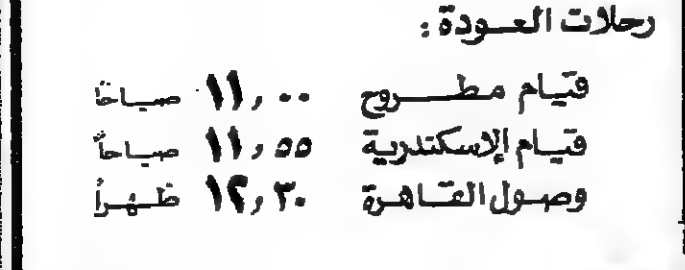 رحلات العودة :
قيام مطروح ١١,٠٠ صباحًا
قيام الإسكندرية ١١,٥٥ صباحاً
وصول القاهرة ١٢,٣٠ ظهراً